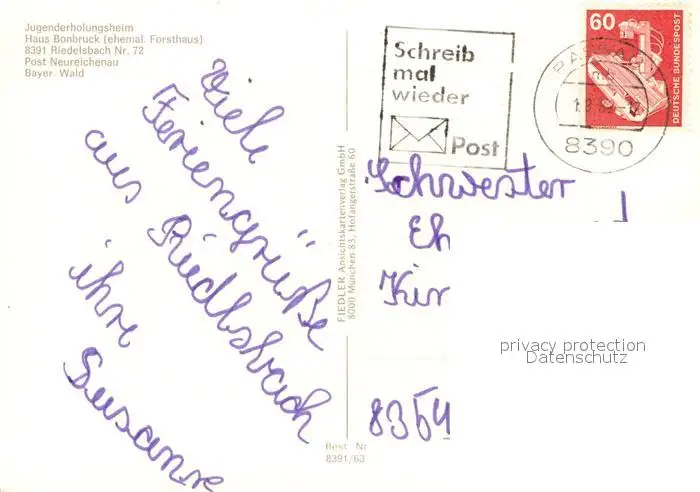 Jugenderholungsheim
Haus Bonbruck (ehemal. Forsthaus)
8391 Riedelsbach Nr. 72
Post Neureichenau
Bayer Wald
Viele
Feriengrüße
aus Riedlsbach
ihre
Susanne
FIEDLER Ansichtskartenverlag GmbH
8000 München 83, Hofangerstraße 60
Best Nr
8391/63
Schreib
mal
wieder
Post
PASSAU
8390
60
DEUTSCHE BUNDESPOST
Schwester
Eh
Kir
8354
privacy protection
Datenschutz